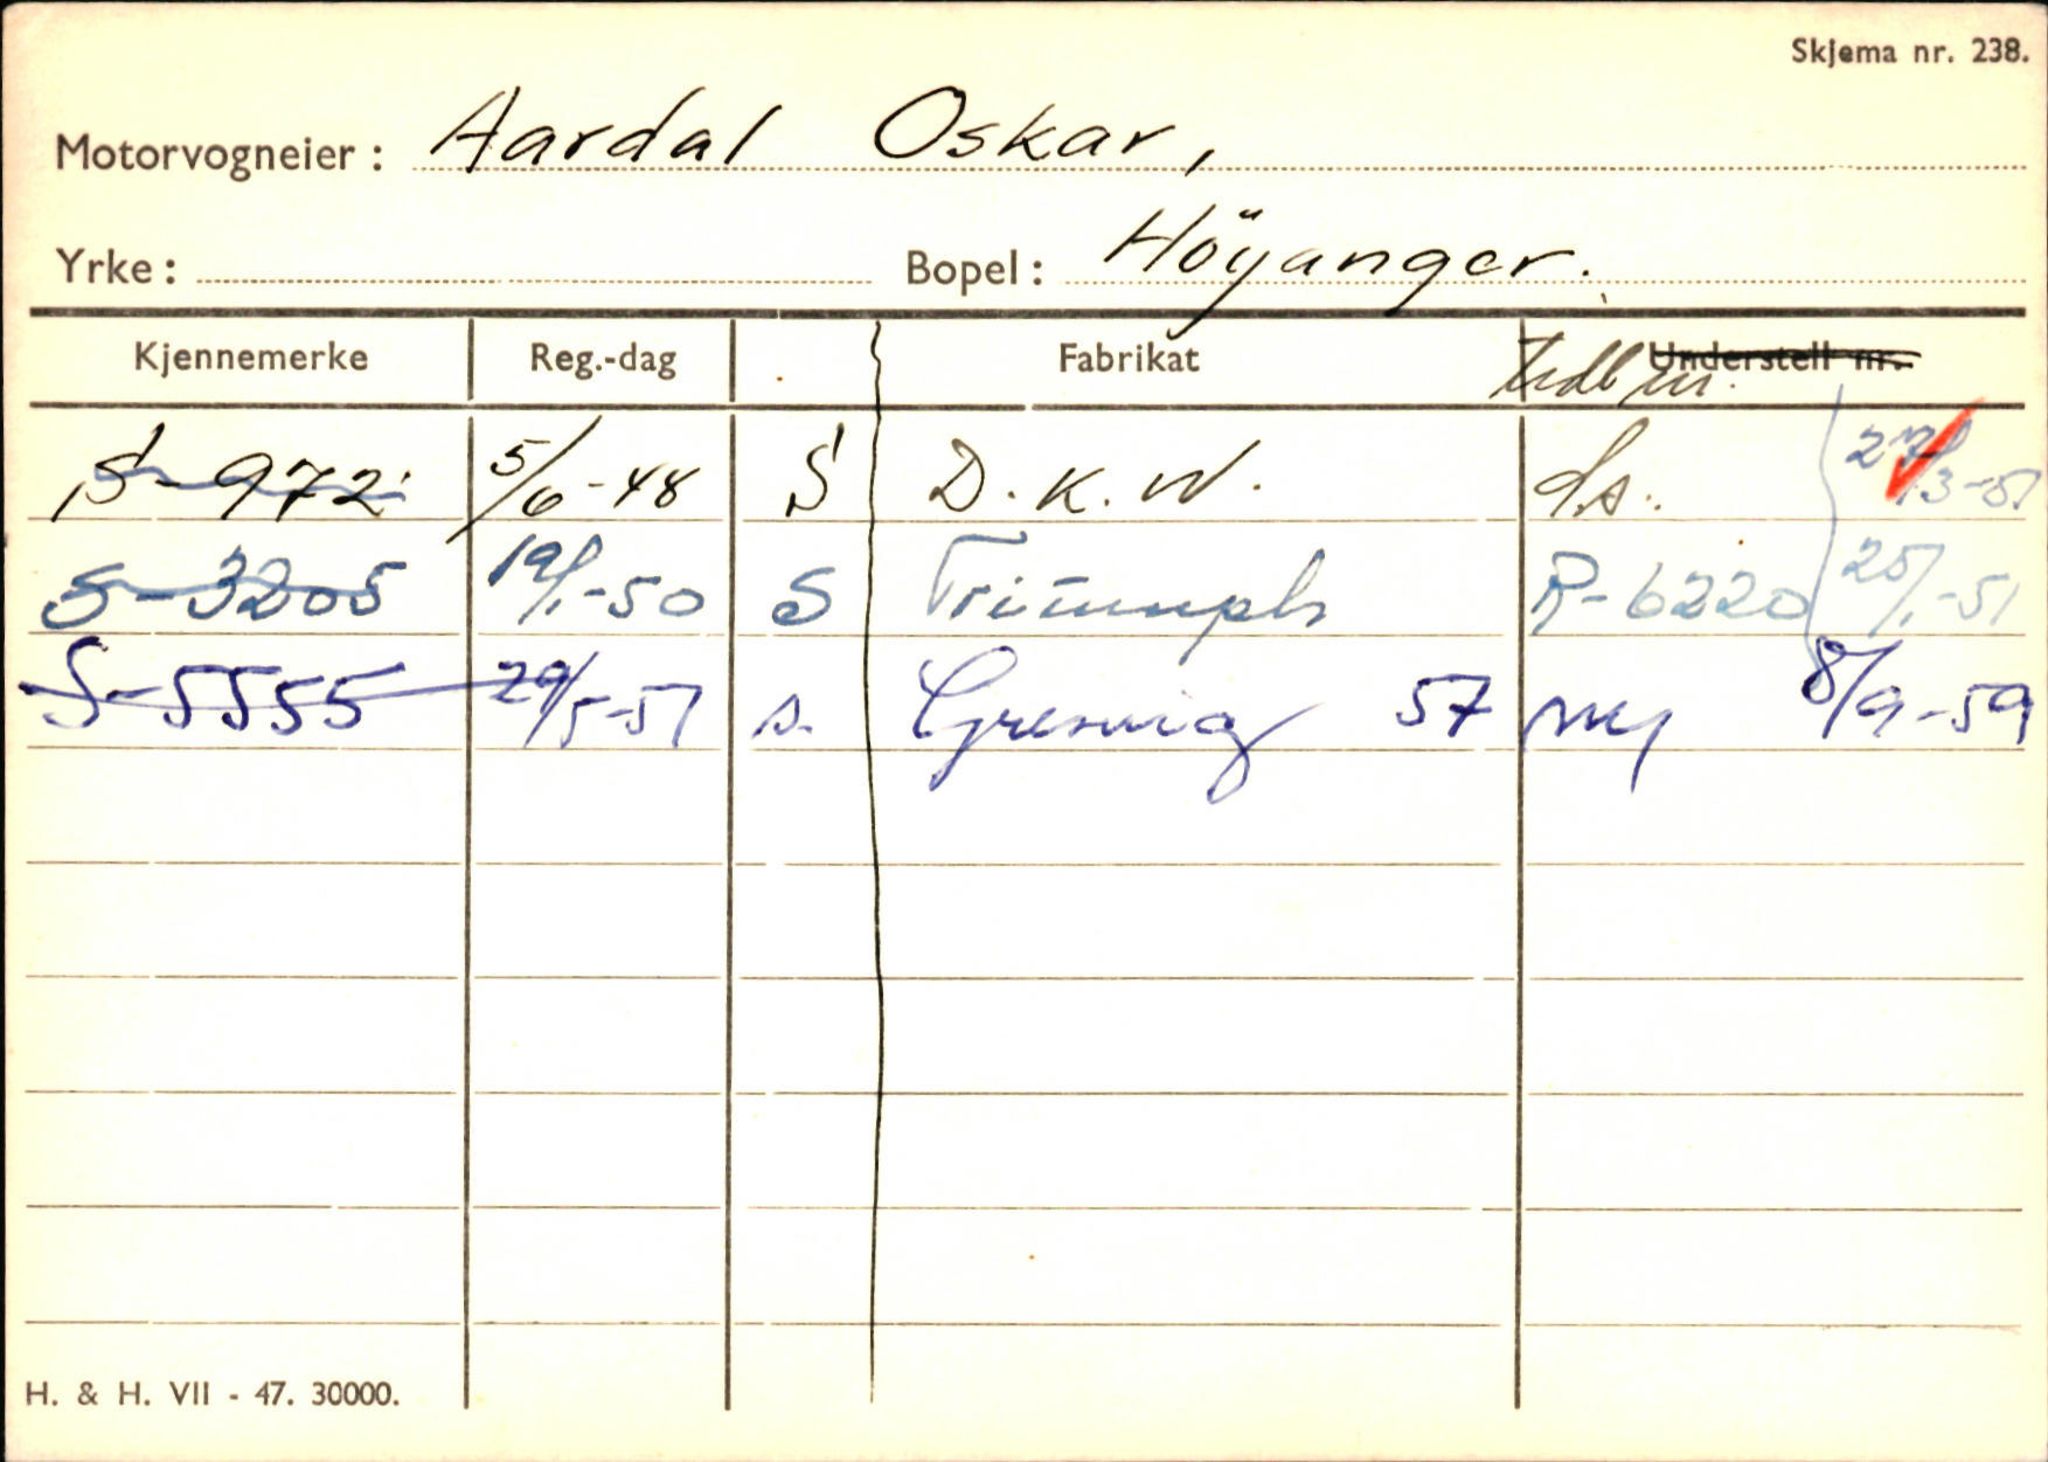 Skjema nr. 238.
Motorvogneier: Aardal Oskar,
Yrke: Bopel: Höyanger.
Kjennemerke Reg.-dag Fabrikat Understell nr.
S-972 5/6-48 S D.K.W. 27/3-51
S-3205 19/1-50 S Triumph R-6220 25/1-51
S-5555 29/5-57 s. Gresvig 57 ny 8/9-59
H. & H. VII - 47. 30000.